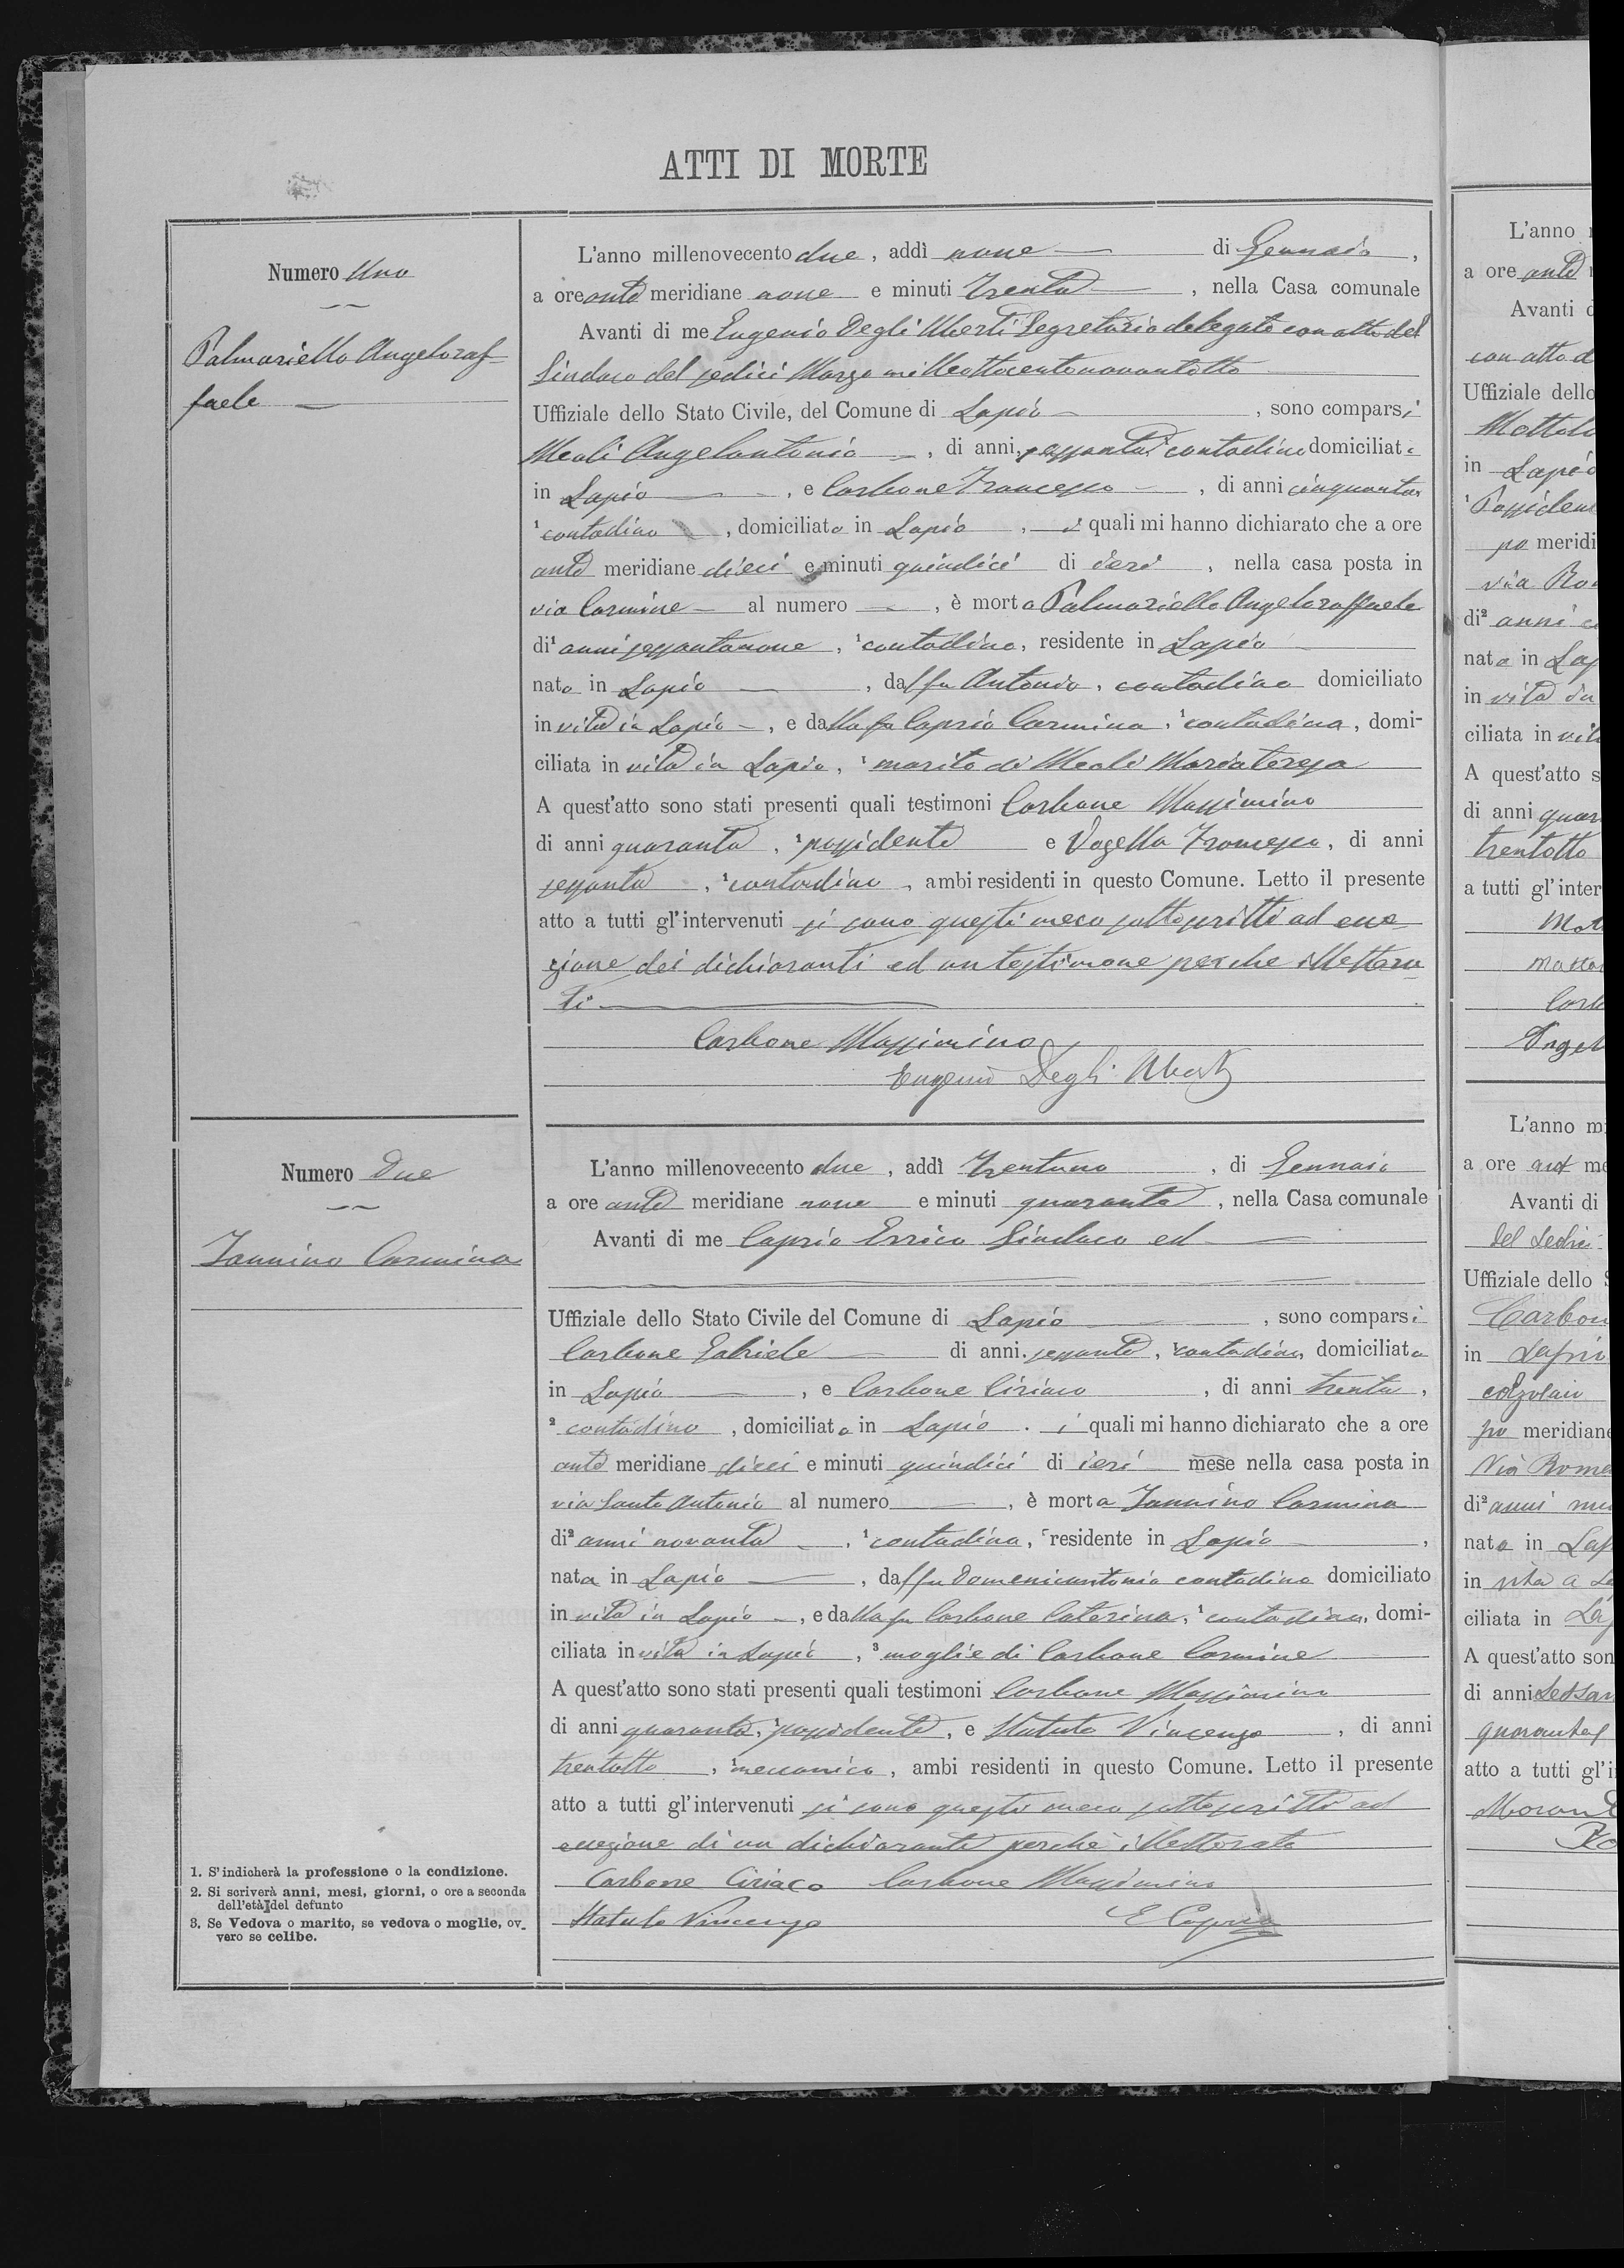 ATTI DI MORTE
Numero Uno
Palmariello Angeloraf-
faele
L'anno millenovecento due, addì nove di Gennaio,
a ore ante meridiane nove e minuti trenta, nella Casa comunale
Avanti di me Eugenio Degli Uberti Segretario delegato con atto del
Sindaco del sedici Marzo milleottocentonovantotto
Uffiziale dello Stato Civile, del Comune di Lapio, sono comparsi
Meoli Angelantonio, di anni sessanta, contadino domiciliato
in Lapio, e Carbone Francesco, di anni cinquanta
¹ contadino, domiciliato in Lapio, i quali mi hanno dichiarato che a ore
ante meridiane dieci e minuti quindici di ieri, nella casa posta in
via Carmine al numero, è morto Palmariello Angeloraffaele
di¹ anni sessantanove, ¹ contadino, residente in Lapio
nato in Lapio, dal fu Antonio, contadino domiciliato
in vita in Lapio, e dalla fu Caprio Carmina, ¹ contadina, domi-
ciliata in vita in Lapio, ³ marito di Meoli Mariateresa
A quest'atto sono stati presenti quali testimoni Carbone Massimino
di anni quaranta, ¹ possidente e Vagella Francesco, di anni
sessanta, ¹ contadino, ambi residenti in questo Comune. Letto il presente
atto a tutti gl'intervenuti si sono questi meco sottoscritti ad ecce
zione dei dichiaranti ed un testimone perche illettera
ti
Carbone Massimino
Eugenio Degli Uberti
Numero Due
Iannino Carmina
L'anno millenovecento due, addì trentuno, di Gennaio
a ore ante meridiane nove e minuti quaranta, nella Casa comunale
Avanti di me Caprio Errico Sindaco ed
Uffiziale dello Stato Civile del Comune di Lapio, sono comparsi
Carbone Gabriele di anni sessanta, ¹ contadino, domiciliato
in Lapio, e Carbone Ciriaco, di anni trenta,
² contadino, domiciliato in Lapio. i quali mi hanno dichiarato che a ore
ante meridiane dieci e minuti quindici di ieri mese nella casa posta in
via Santo Antonio al numero, è morta Iannino Carmina
di² anni novanta, ¹ contadina, residente in Lapio,
nata in Lapio, dal fu Domenicantonio contadino domiciliato
in vita in Lapio, e dalla fu Carbone Caterina, ¹ contadina, domi-
ciliata in vita in Lapio, ³ moglie di Carbone Carmine
A quest'atto sono stati presenti quali testimoni Carbone Massimino
di anni quaranta, ¹ possidente, e Statuto Vincenzo, di anni
trentotto, ¹ meccanico, ambi residenti in questo Comune. Letto il presente
atto a tutti gl'intervenuti si sono questi meco sottoscritti ad
eccezione di un dichiarante perchè illetterato
Carbone Ciriaco Carbone Massimino
Statuto Vincenzo E Caprio
1. S'indicherà la professione o la condizione.
2. Si scriverà anni, mesi, giorni, o ore a seconda
dell'età del defunto
3. Se Vedova o marito, se vedova o moglie, ov-
vero se celibe.
L'anno
a ore ante
Avanti
con atto d
Uffiziale dello
in Lapio
¹ Possiden
po meridi
via Ro
di² anni
nato in Lap
in vita in
ciliata in vit
A quest'atto s
di anni quar
trentotto
a tutti gl'inter
L'anno m
a ore ant me
Avanti di
del Sedici
Uffiziale dello
Carbon
in Lapio
calzolaio
po meridiane
Via Roma
di² anni
nato in Lap
in vita a
ciliata in
A quest'atto son
di anni Sessan
quaranta
atto a tutti gl'i